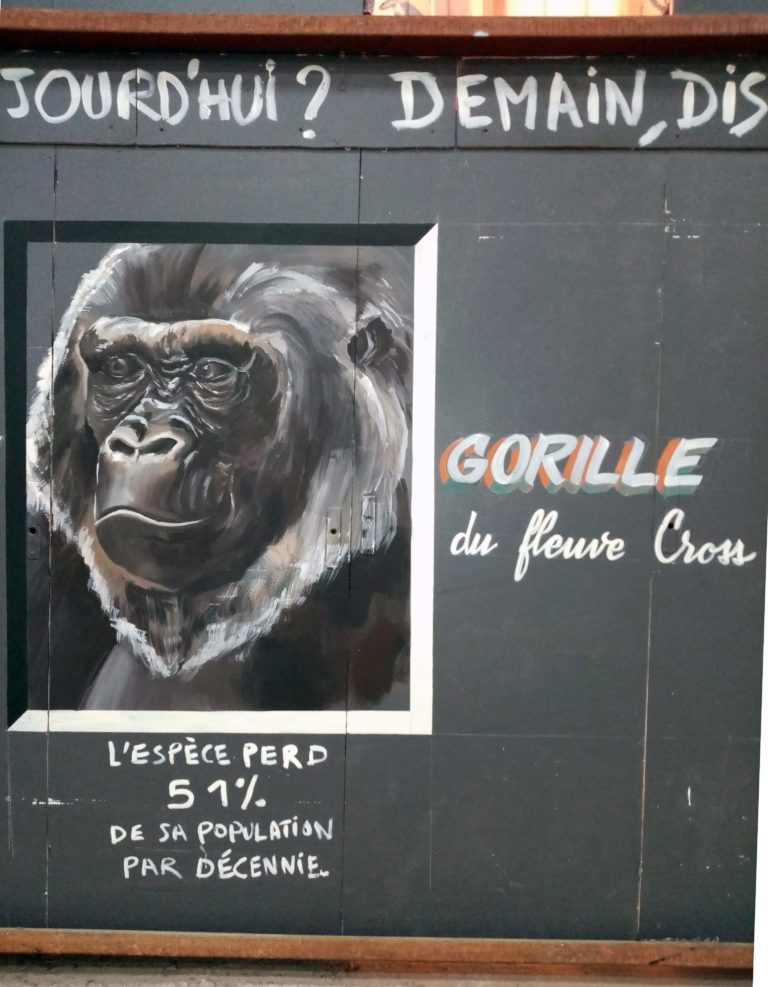 JOURD'HUI? DEMAIN, DIS
GORILLE
du fleuve Cross
L'ESPÈCE PERD
51%
DE SA POPULATION
PAR DÉCENNIE.